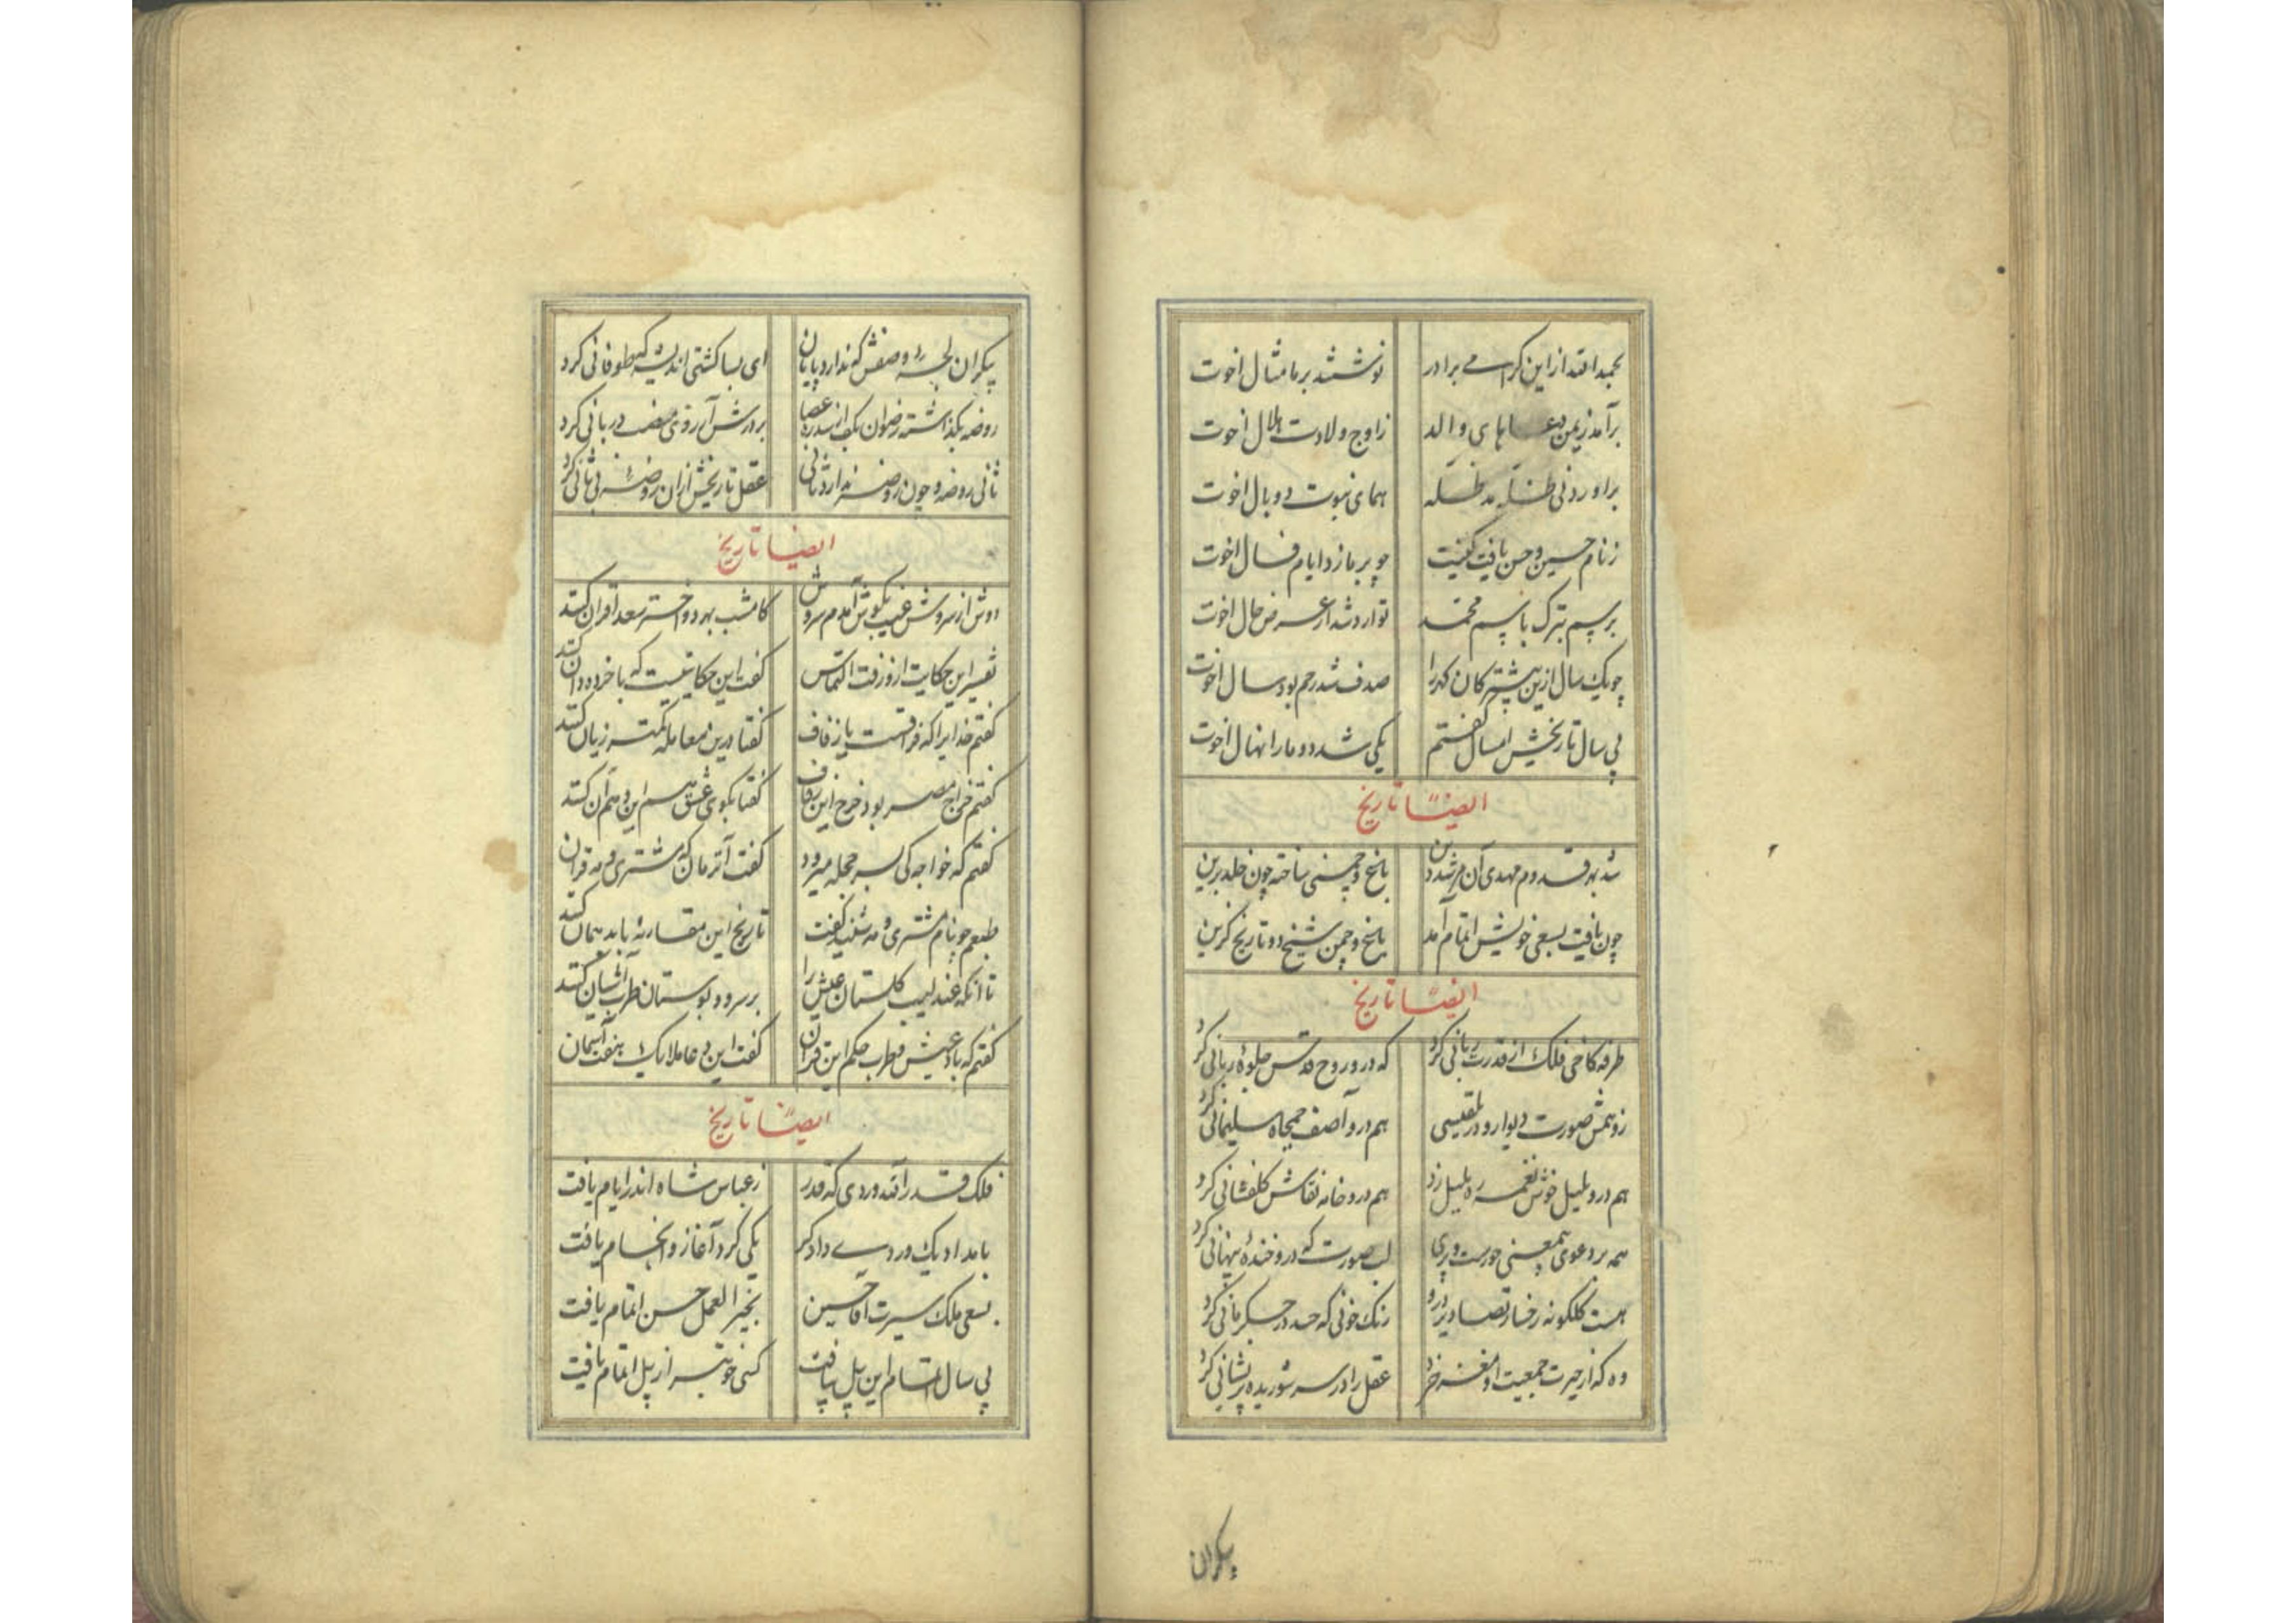 بحمدالله از این کرامی برادر نوشتند بر ما مثال اخوت
برآمد ز یمن دعاهای والد ز اوج ولادت هلال اخوت
برآورد نی ظله مد ظله همای نبوت دو بال اخوت
ز نام حسین و حسن یافت کنیت چو بر ما زد ایام فال اخوت
برسم تبرک باسم محمد توارد شد از عرض حال اخوت
چو یک سال ازین پیشتر کان کهر را صدف شد رحم بود سال اخوت
پی سال تاریخش امسال گفتم یکی شد دو ما را نهال اخوت
ایضاً تاریخ
شد بهر قدوم مهدی آن مرشد دین باغ و چمنی ساخته چون خلد برین
چون یافت بسعی خویش اتمام آمد باغ و چمن شیخ دو تاریخ کزین
ایضاً تاریخ
طرفه کاخی فلک از قدرت ربانی کرد که درو روح قدس جلوهٔ ربانی کرد
زو همش صورت دیوار و در بلقیسی هم درو آصف جمجاه سلیمانی کرد
هم درو بلبل خوش نغمه ره بلبل زد هم درو خامه نقاش کلفشانی کرد
همه بر دعوی بمعنی حورست و پری لب صورت که درو خندهٔ پنهانی کرد
هست کلکونه رخسار تصاویر درو رنک خونی که حسد در جکر مانی کرد
وه که از حیرت جمعیت او مغز خرد عقل را در سر شوریده پریشانی کرد
بیکران
بیکران لجه وصفش که ندارد پایان ای بسا کشتی اندیشه که طوفانی کرد
روضه بکذاشته رضوان بکف اندر عصا بر درش آرزوی منصب دربانی کرد
ثانی روضه و چون روضه ندارد ثانی عقل تاریخش از آن روضه بی ثانی کرد
ایضا تاریخ
دوش از سروش غیب بکوش آمدم سروش کامشب بهر دو اختر سعد اقران کنند
تفسیر این حکایت ازو رفت التماس گفت این حکایتیست که با خرده دان کنند
گفتم خدایرا که فراقست یا زفاف گفتا درین معامله کمتر زیان کنند
گفتم خراج مصر بود خرج این زفاف گفتا بکوی عشق هم این و هم آن کنند
گفتم که خواجه کی بسر حجله میرود گفت آنزمان که مشتری و مه قران کنند
طبعم چو نام مشتری و مه شنید گفت تاریخ این مقارنه باید همان کنند
تا آنکه عندلیب کلستان عیش را بر سرو بوستان طرب آشیان کنند
گفتم که باد عیش و طرب حکم این قران گفت این دعا ملایک هفت آسمان کنند
ایضاً تاریخ
فلک قدر الله وردی که قدر ز عباس شاه اندر ایام یافت
بامداد یک وردی دادکر یکی کرد آغاز و انجام یافت
بسعی ملک سیرت آقا حسین بخیر العمل حسن اتمام یافت
پی سال اتمام این پل بیافت کسی خوبتر از پل اتمام یافت